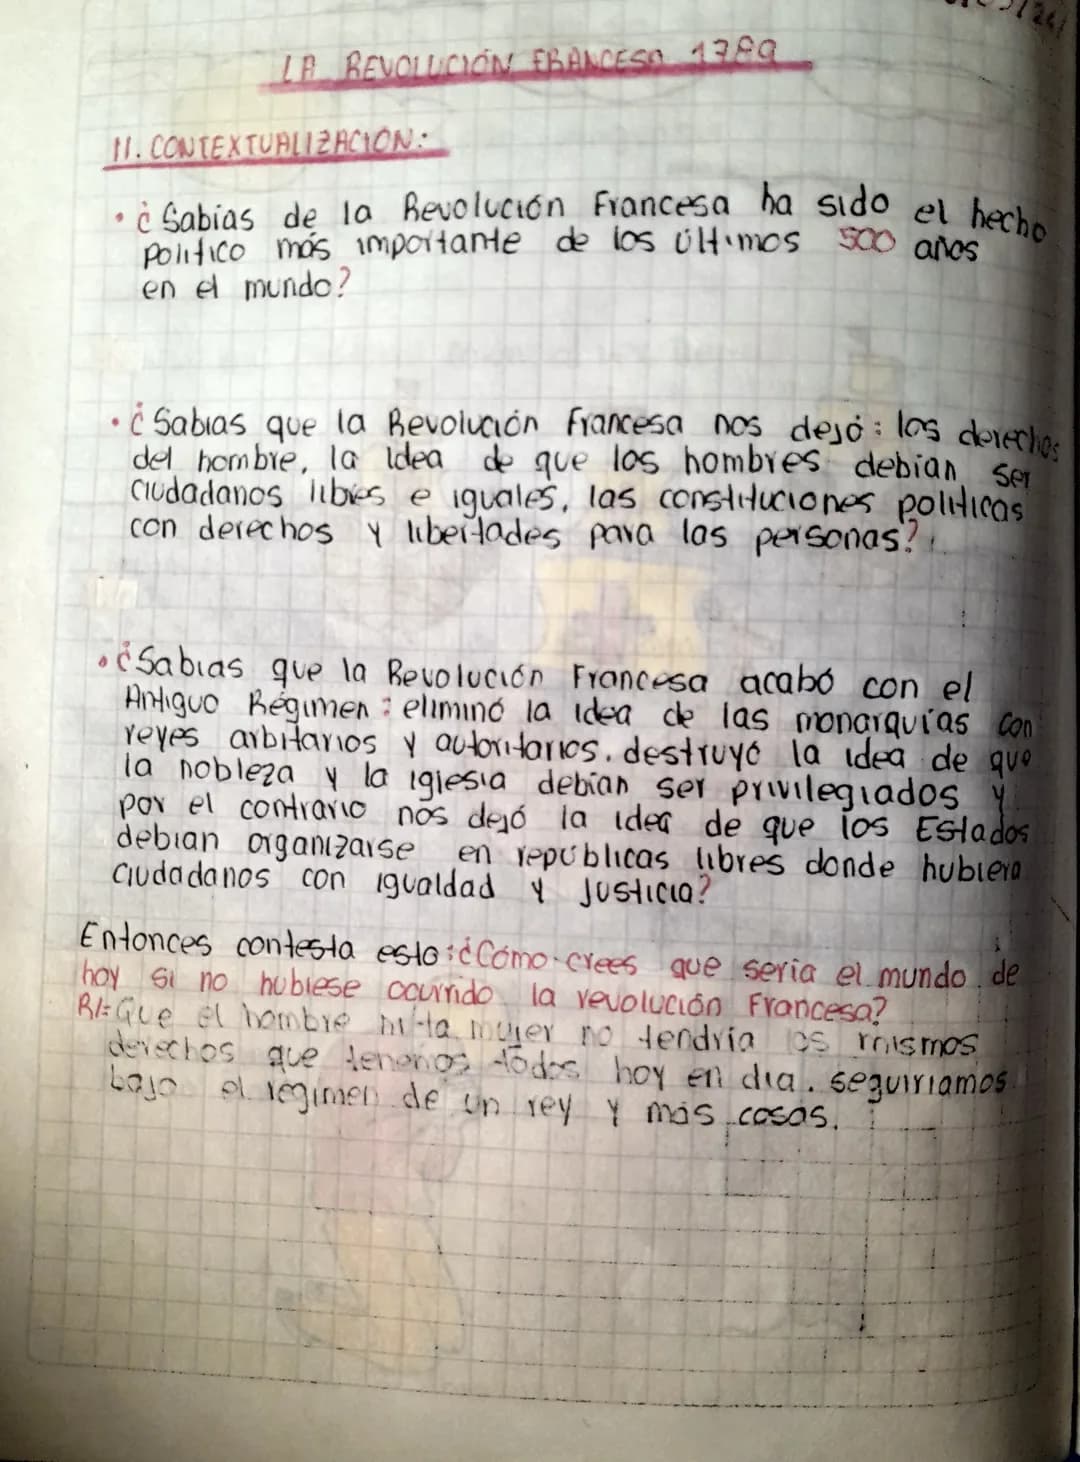 LA REVOLUCIÓN FRANCESA 1789
II. CONTEXTUALIZACIÓN:
• ¿Sabías de la Revolución Francesa ha sido el hecho
político más importante de los últimos 500 años
en el mundo?
• ¿Sabías que la Revolución Francesa nos dejó: los derechos
del hombre, la idea de que los hombres debían ser
ciudadanos libres e iguales, las constituciones políticas
con derechos y libertades para las personas?
• ¿Sabías que la Revolución Francesa acabó con el
Antiguo Régimen: eliminó la idea de las monarquías con
reyes arbitarios y autoritarios. destruyó la idea de que
la nobleza y la iglesia debían ser privilegiados y
por el contrario nos dejó la idea de que los Estados
debían organizarse en repúblicas libres donde hubiera
ciudadanos con igualdad y justicia?
Entonces contesta esto: ¿Cómo crees que sería el mundo de
hoy si no hubiese ocurrido la revolución Francesa?
R/= Que el hombre ni la mujer no tendría os mismos
derechos que tenemos todos hoy en día. seguiríamos
bajo el régimen de un rey y más cosas.